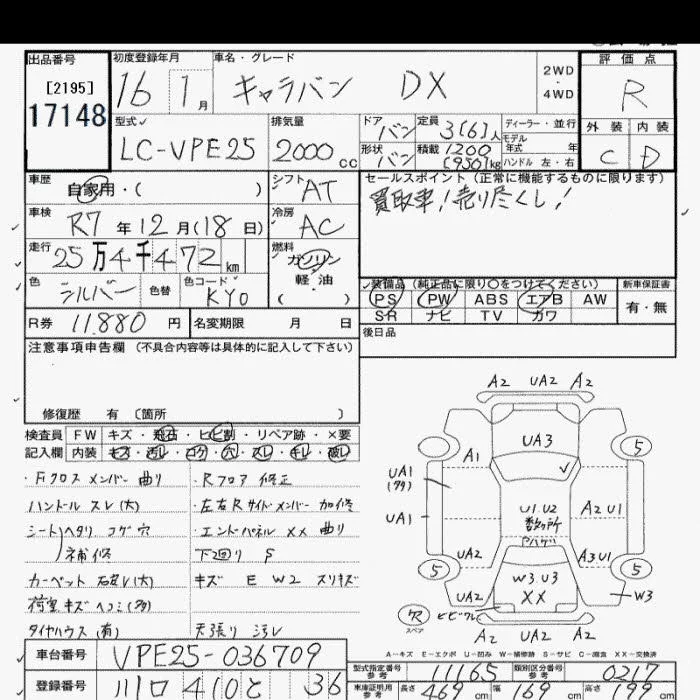 出品番号
[2195]
17148
初度登録年月
16 1月
車名・グレード
キャラバン DX
2WD
・
4WD
評価点
R
型式
LC-VPE25
排気量
2000cc
ドア
バン
定員
3[6]人
ディーラー・並行
モデル
年式 年
形状
バン
積載
1200
[950]kg
ハンドル 左・右
外装 内装
C D
車歴
自家用・( )
シフト
AT
セールスポイント(正常に機能するものに限ります)
買取車!売り尽くし!
車検
R7年12月(18日)
冷房
AC
走行
25万4千472km
燃料
ガソリン
軽・油
( )
色
シルバー
色替
色コード
KY0
装備品(純正品に限り○をつけてください)
PS PW ABS エアB AW
SR ナビ TV カワ
新車保証書
有・無
R券 11.880円
名変期限 月 日
後日品
注意事項申告欄(不具合内容等は具体的に記入して下さい)
修復歴 有〔箇所 〕
検査員
記入欄
FW キズ・飛石・ヒビ割・リペア跡・×要
内装 キズ・汚レ・コゲ・穴・スレ・キレ・破レ
・Fクロスメンバー曲り
ハンドルスレ(大)
シートヘタリ コゲ穴
補修
カーペット 破レ(大)
荷室キズヘコミ(多)
タイヤハウス(有)
・Rフロア修正
・左右Rサイドメンバー加修
・エンドパネルXX曲り
下廻り S
キズ E W2 スリキズ
天張り汚レ
A2 UA2 A2
UA3
A1
5
UA1
(多)
UA1
U1.U2
数ヶ所
ヤハゲ
A2 U1
UA2
A3U1
5
5
W3.U3
XX
W3
UA2
穴
スペア
ヒビワレ
A2 UA2 A2
A-キズ E-エクボ U-凹み W-補修跡 S-サビ C-腐食 XX-交換済
車台番号
VPE25-036709
型式指定番号
参考
11165
類別区分番号
参考
0217
登録番号
川口 410 と 36
車庫証明用
参考
長さ 469cm 幅 169cm 高さ 199cm